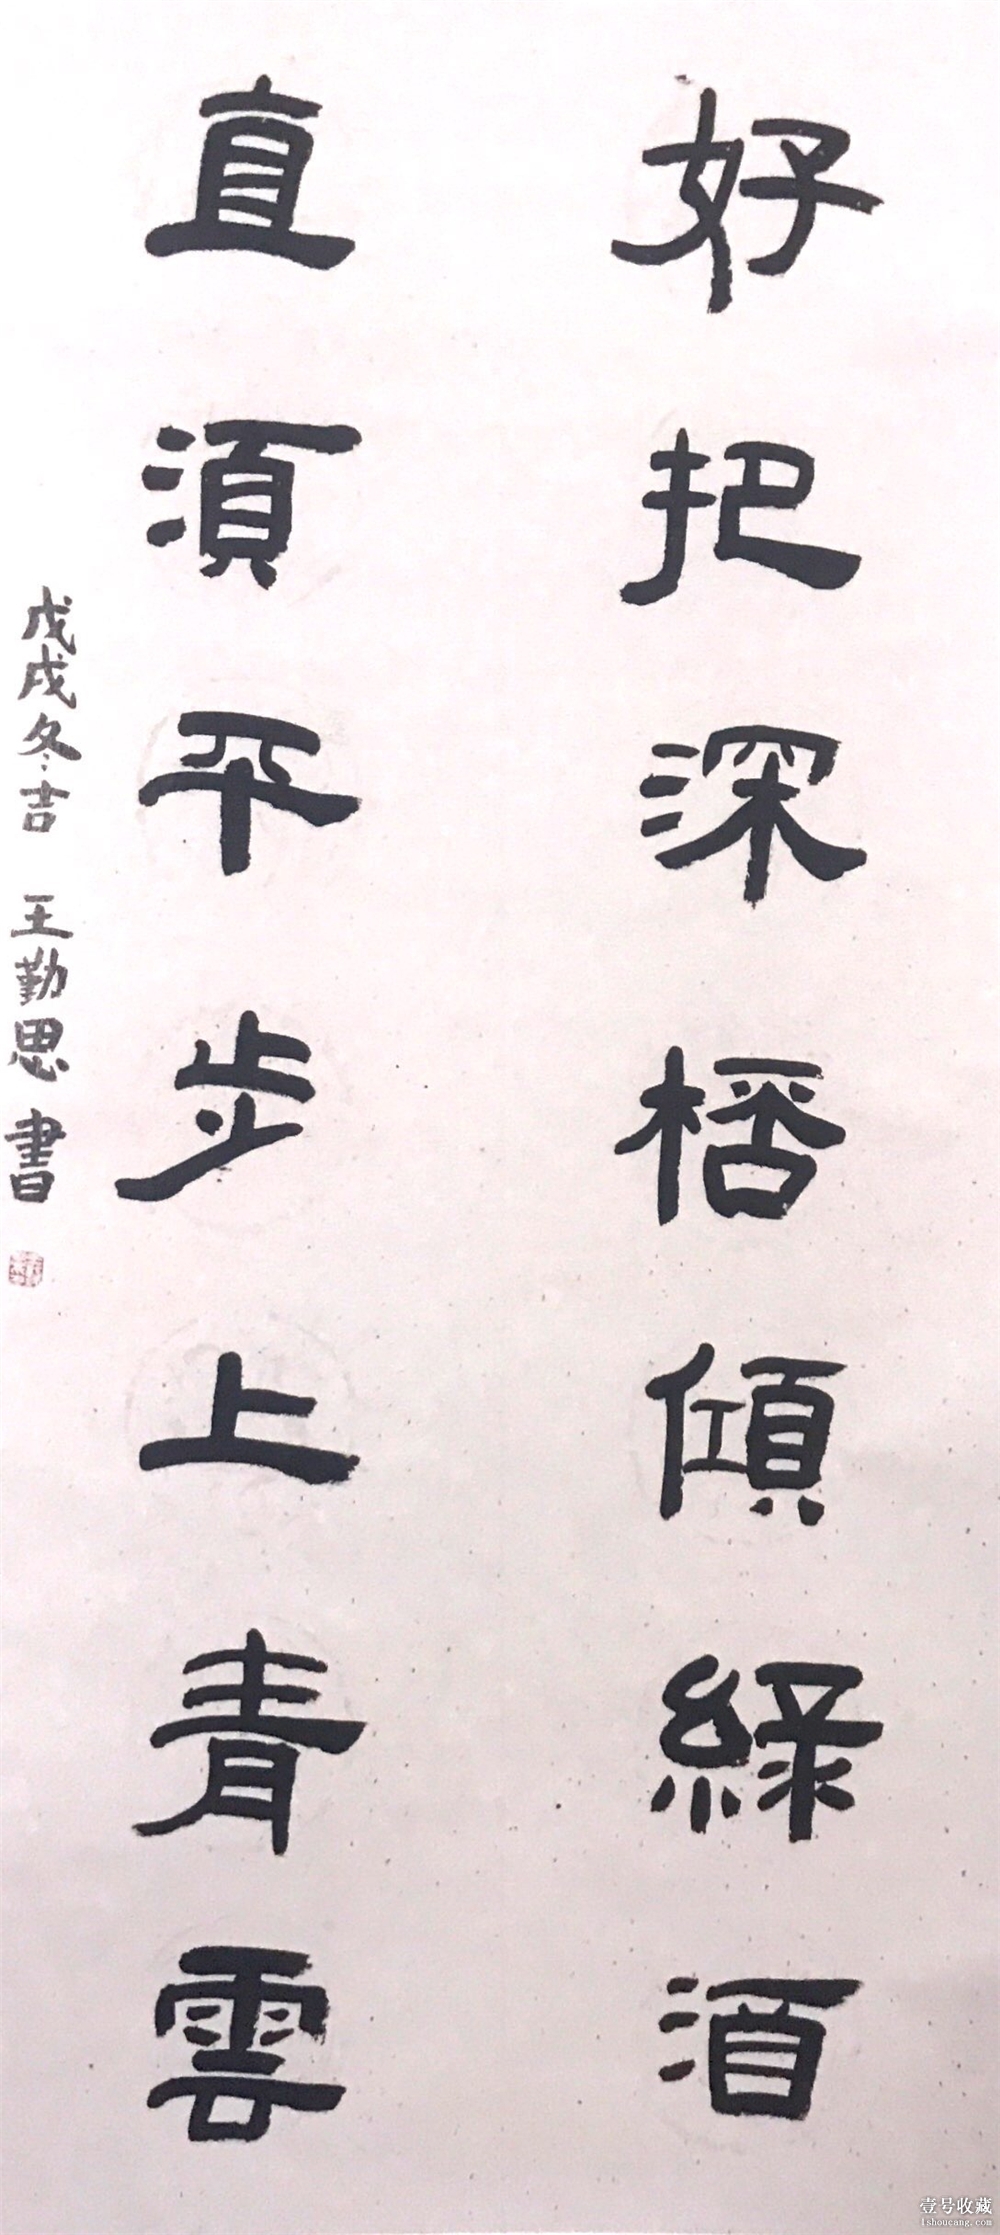 好把深桮傾緑酒
直須平步上青雲
戊戌冬吉 王勤思書
壹号收藏
1shoucang.com